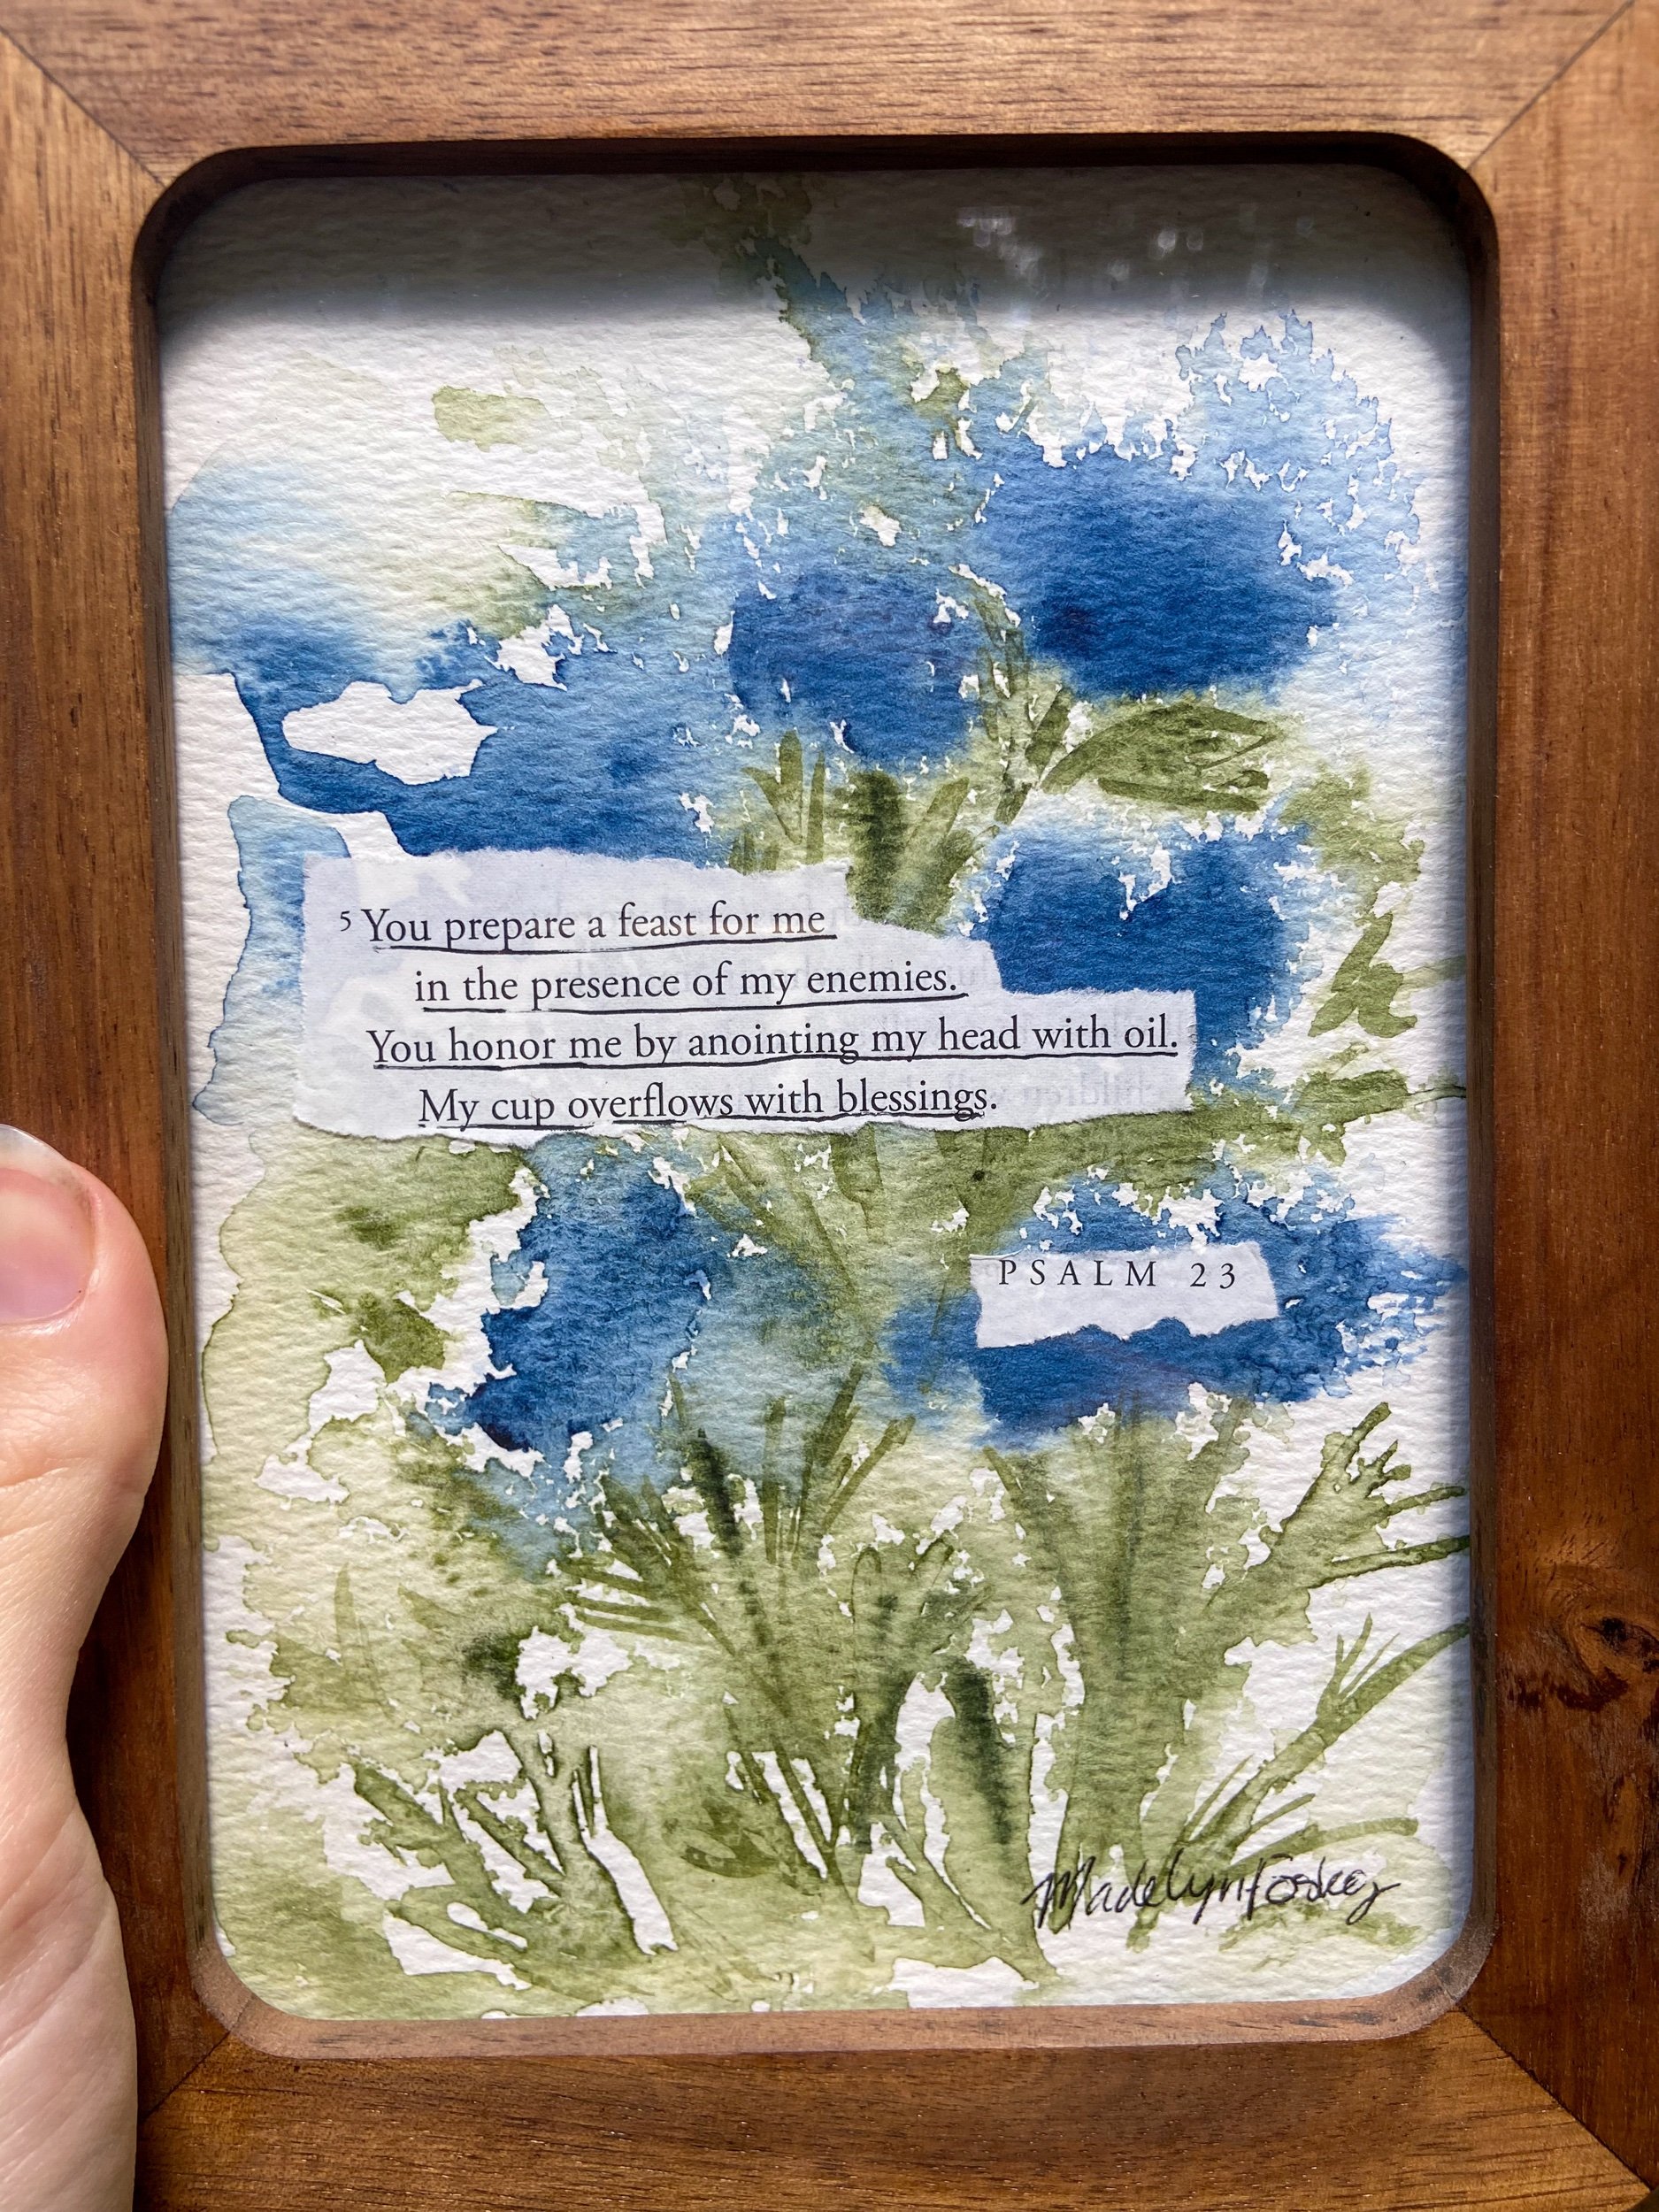 5 You prepare a feast for me
in the presence of my enemies.
5 You honor me by anointing my head with oil.
My cup overflows with blessings.
PSALM 23
Madelyn Foskey